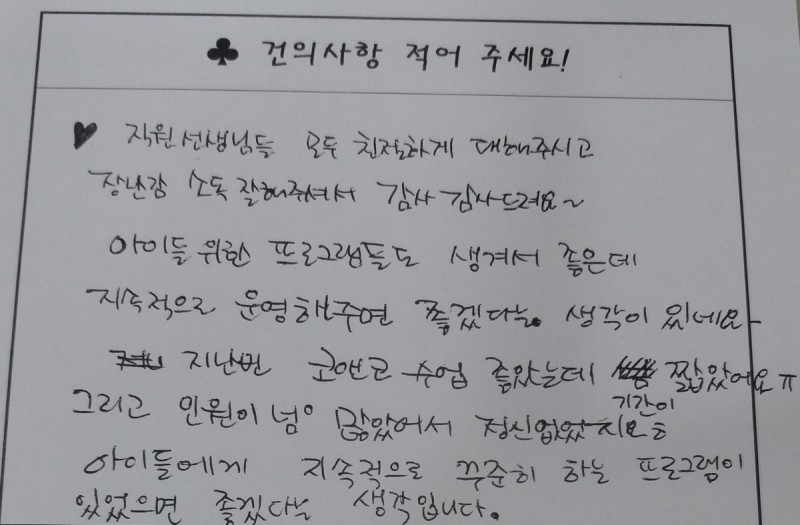 ♣ 건의사항 적어 주세요!
♥ 직원선생님들 모두 친절하게 대해주시고
장난감 소독 잘해주셔서 감사 감사드려요~
아이들 위한 프로그램들도 생겨서 좋은데
지속적으로 운영해주면 좋겠다는 생각이 있네요
지난번 코앤코 수업 좋았는데 기간이 짧았어요ㅠ
그리고 인원이 넘 많았어서 정신없었지요
아이들에게 지속적으로 꾸준히 하는 프로그램이
있었으면 좋겠다는 생각입니다.